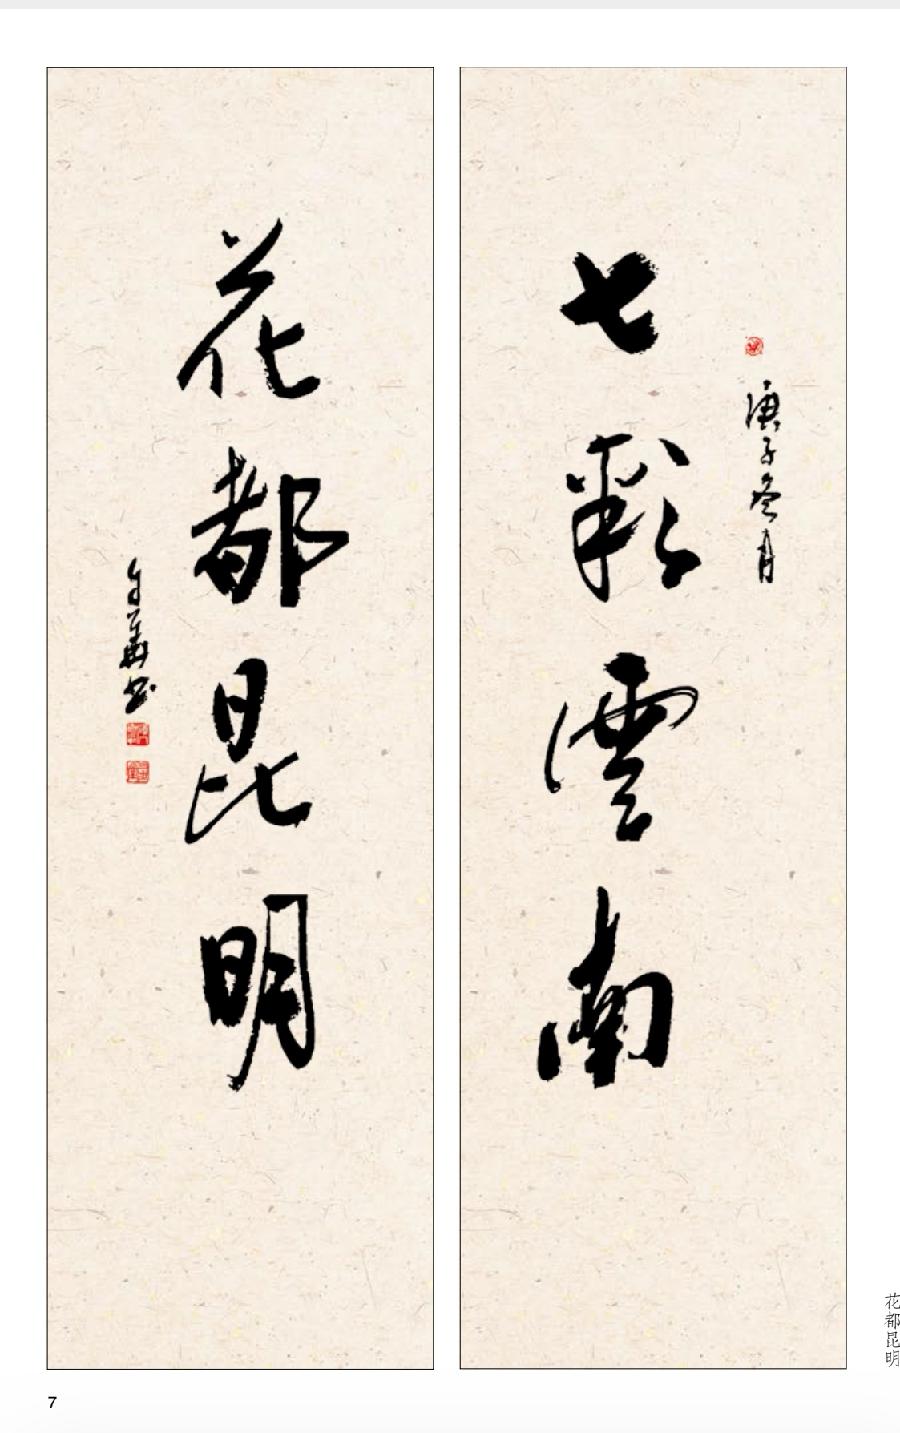 七彩雲南
庚子冬月
花都昆明
花都昆明
7